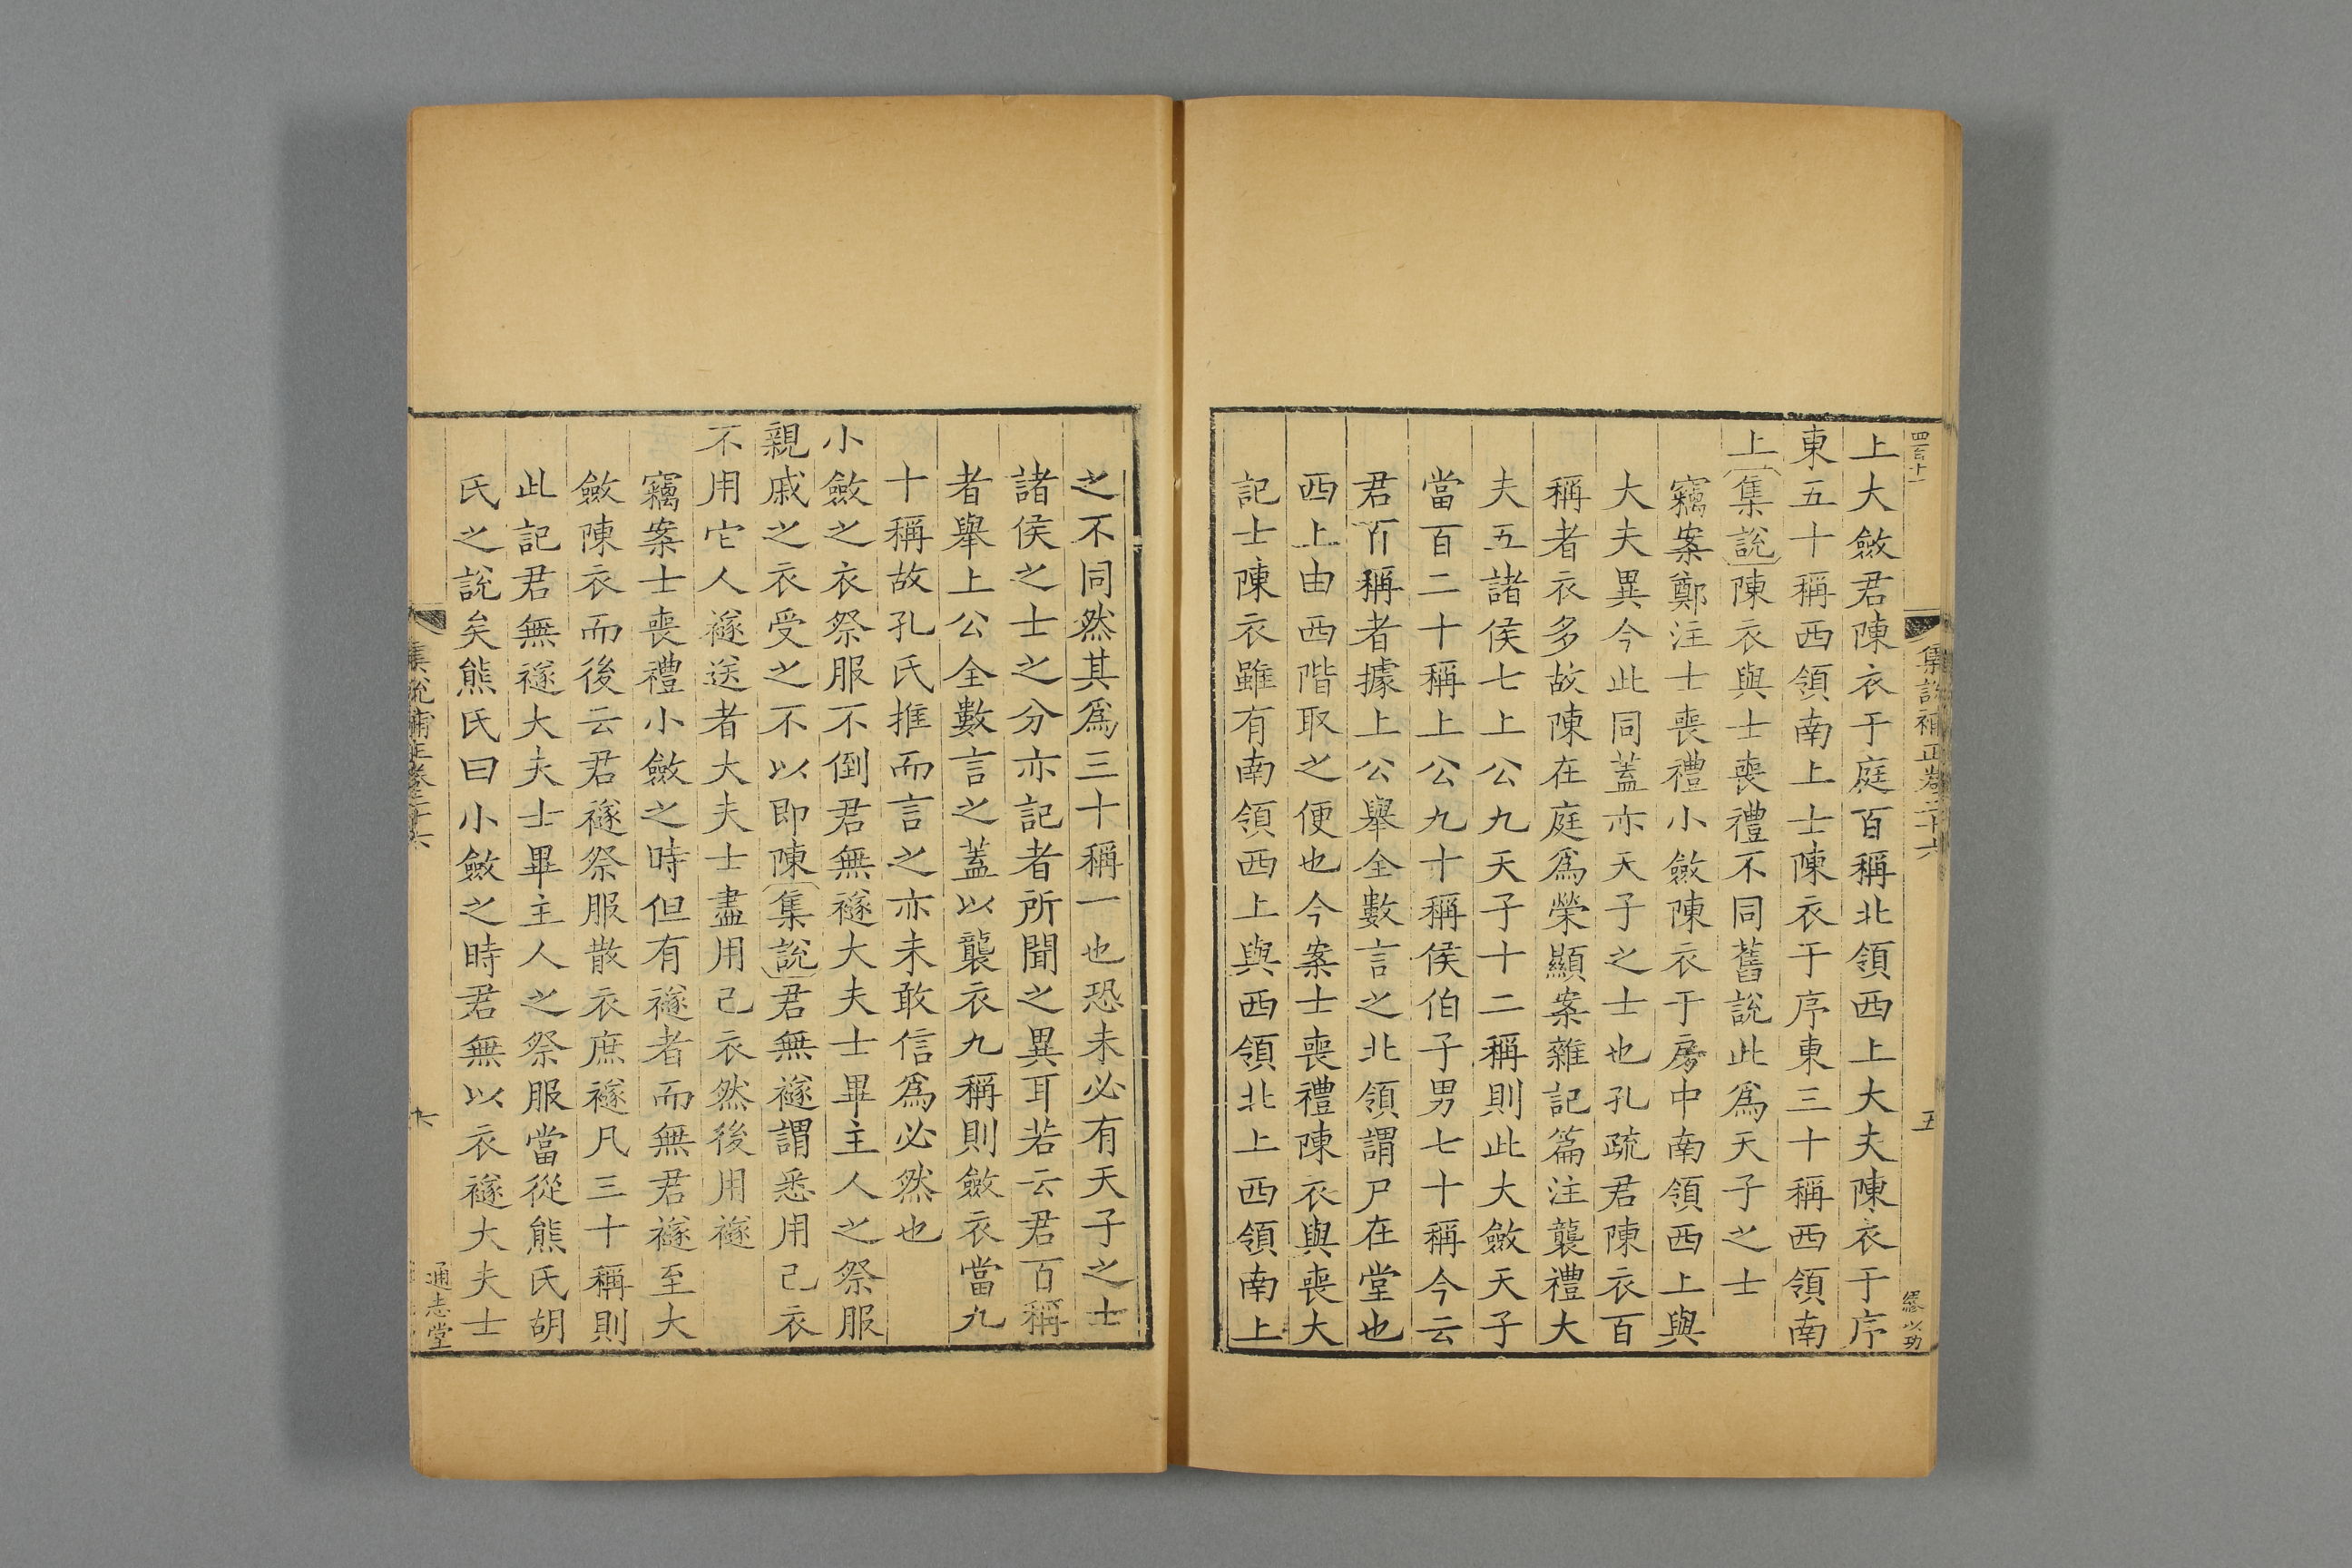 四百十一
集說補正卷二十六
五
上大斂君陳衣于庭百稱北領西上大夫陳衣于序
東五十稱西領南上士陳衣于序東三十稱西領南
上集說陳衣與士喪禮不同舊說此爲天子之士
竊案鄭注士喪禮小斂陳衣于房中南領西上與
大夫異今此同蓋亦天子之士也孔疏君陳衣百
稱者衣多故陳在庭爲榮顯案雜記篇注襲禮大
夫五諸侯七上公九天子十二稱則此大斂天子
當百二十稱上公九十稱侯伯子男七十稱今云
君百稱者據上公舉全數言之北領謂尸在堂也
西上由西階取之便也今案士喪禮陳衣與喪大
記士陳衣雖有南領西上與西領北上西領南上
之不同然其爲三十稱一也恐未必有天子之士
諸侯之士之分亦記者所聞之異耳若云君百稱
者舉上公全數言之蓋以襲衣九稱則斂衣當九
十稱故孔氏推而言之亦未敢信爲必然也
小斂之衣祭服不倒君無襚大夫士畢主人之祭服
親戚之衣受之不以即陳集說君無襚謂悉用己衣
不用它人襚送者大夫士盡用己衣然後用襚
竊案士喪禮小斂之時但有襚者而無君襚至大
斂陳衣而後云君襚祭服散衣庶襚凡三十稱則
此記君無襚大夫士畢主人之祭服當從熊氏胡
氏之說矣熊氏曰小斂之時君無以衣襚大夫士
集說補正卷二十六
六
通志堂